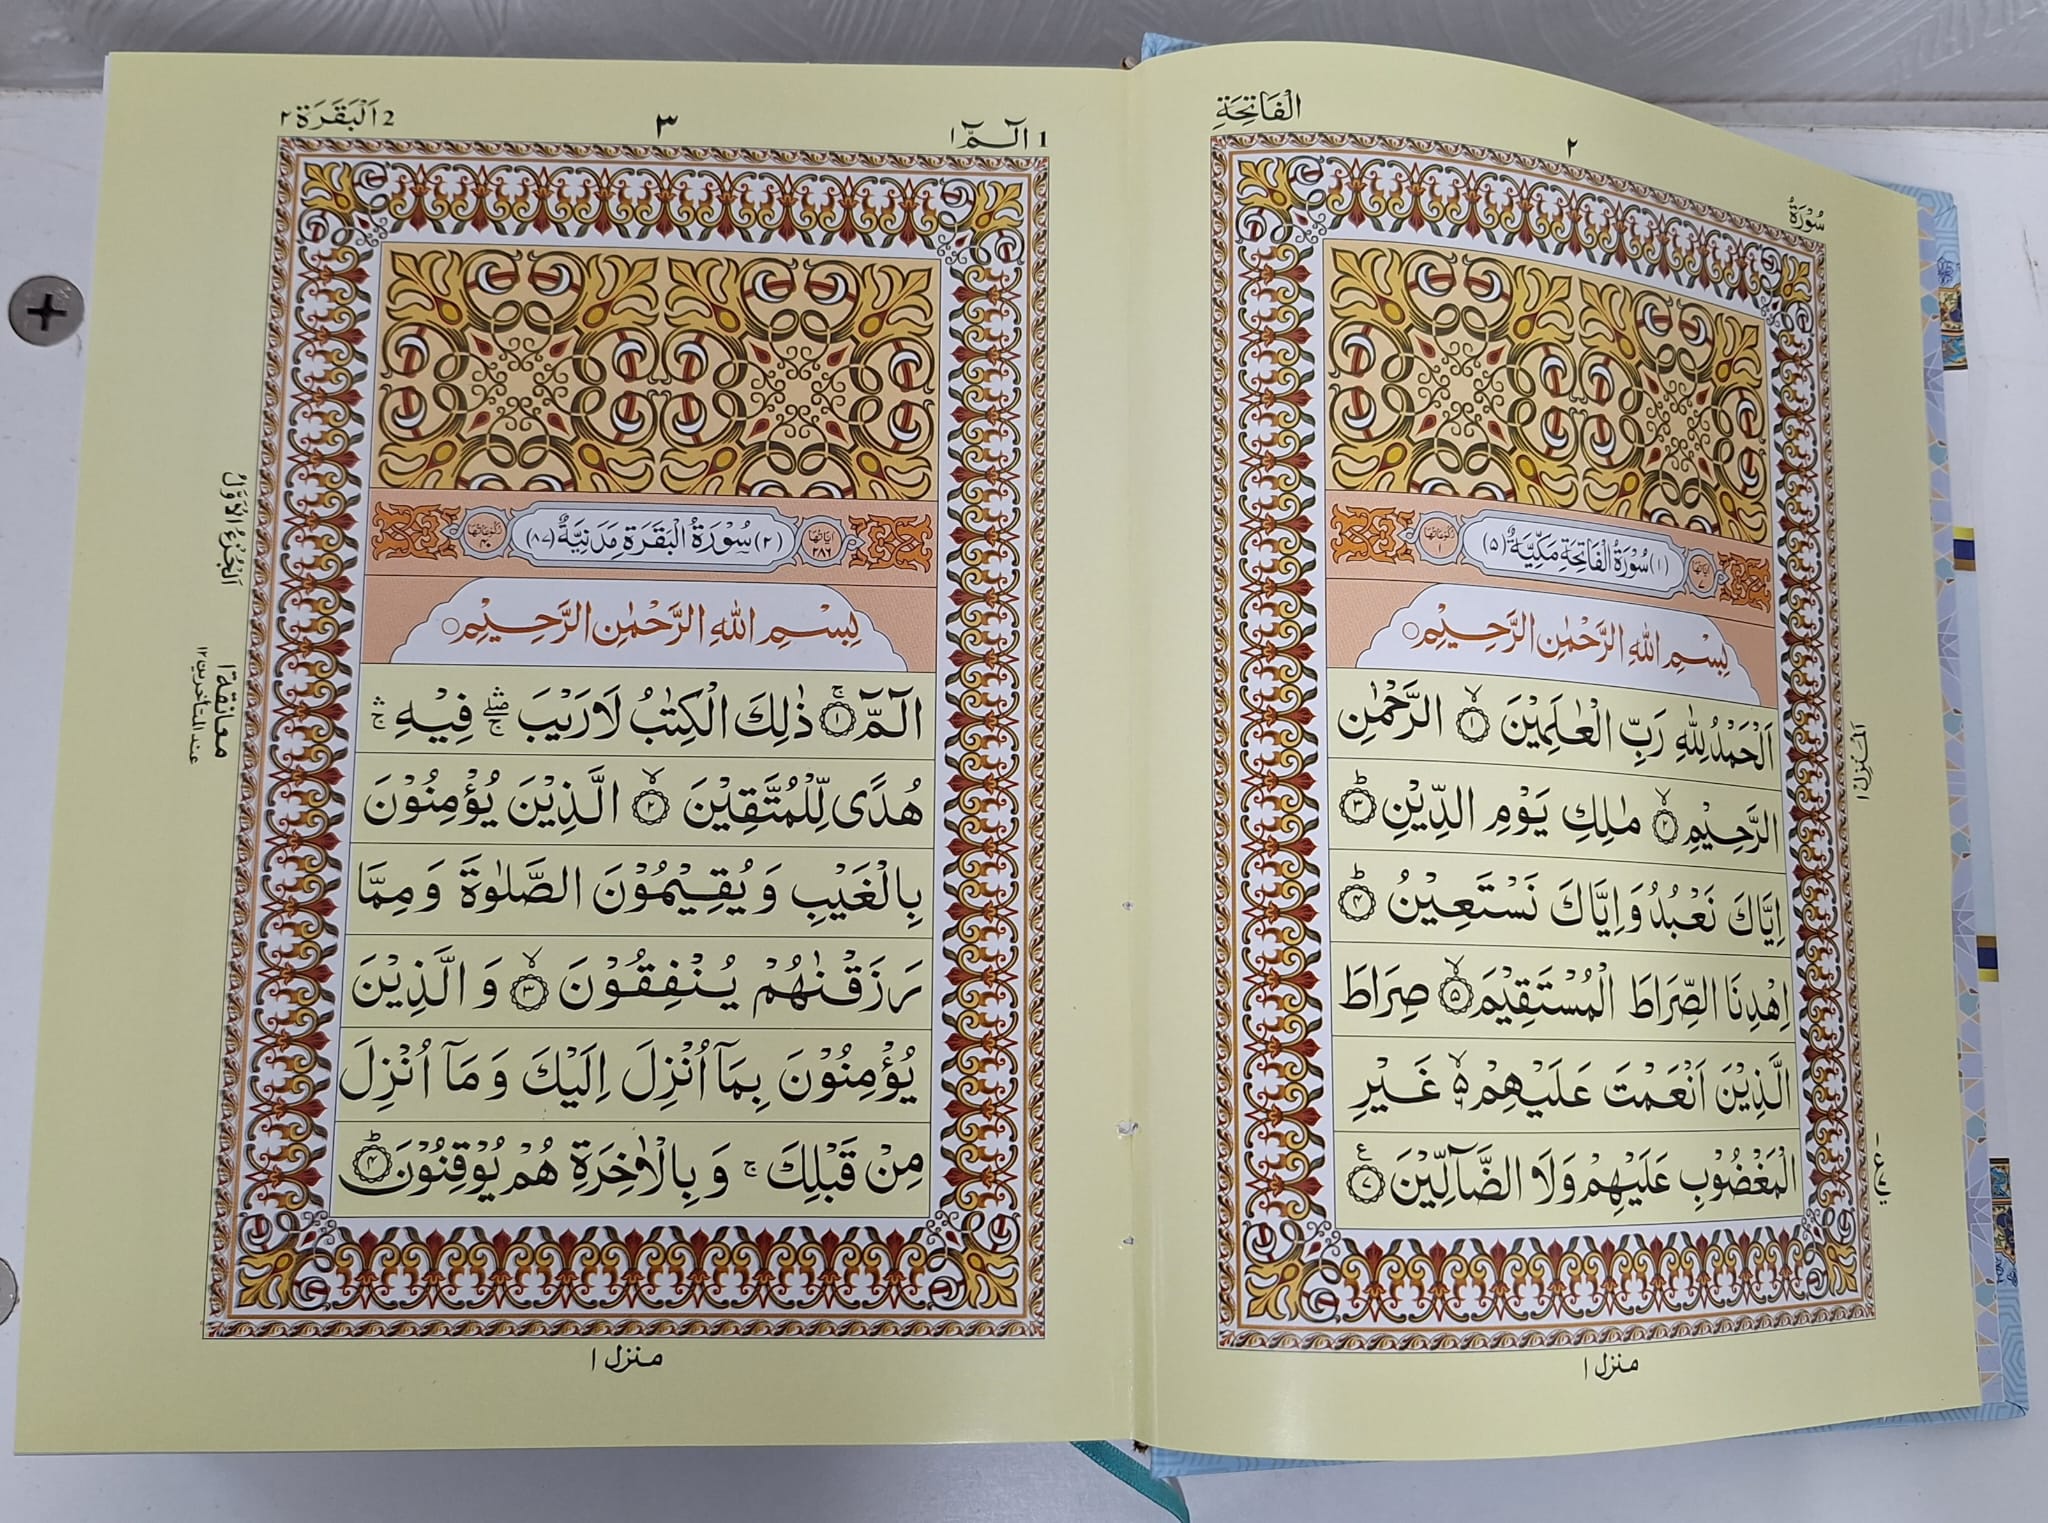 سُوْرَةُ
٢
الْفَاتِحَةِ
اٰيَاتُهَا ٧
(١) سُوْرَةُ الْفَاتِحَةِ مَكِّيَّةٌ (٥)
رُكُوْعَاتُهَا ١
بِسْمِ اللّٰهِ الرَّحْمٰنِ الرَّحِيْمِ
اَلْحَمْدُ لِلّٰهِ رَبِّ الْعٰلَمِيْنَ ۙ﴿١﴾ الرَّحْمٰنِ
الرَّحِيْمِ ۙ﴿٢﴾ مٰلِكِ يَوْمِ الدِّيْنِ ؕ﴿٣﴾
اِيَّاكَ نَعْبُدُ وَاِيَّاكَ نَسْتَعِيْنُ ؕ﴿٤﴾
اِهْدِنَا الصِّرَاطَ الْمُسْتَقِيْمَ ۙ﴿٥﴾ صِرَاطَ
الَّذِيْنَ اَنْعَمْتَ عَلَيْهِمْ ۙ۬ ﴿٦﴾ غَيْرِ
الْمَغْضُوْبِ عَلَيْهِمْ وَلَا الضَّآلِّيْنَ ﴿٧﴾ ع
اَلْمَنْزِلُ ١
منزل ١
1 الٓمّٓ ١
٣
2 اَلْبَقَرَة ٢
اٰيَاتُهَا ٢٨٦
(٢) سُوْرَةُ الْبَقَرَةِ مَدَنِيَّةٌ (٨٧)
رُكُوْعَاتُهَا ٤٠
بِسْمِ اللّٰهِ الرَّحْمٰنِ الرَّحِيْمِ
الٓمّٓ ۚ﴿١﴾ ذٰلِكَ الْكِتٰبُ لَا رَيْبَ ۛۖۚ فِيْهِ ۛۚ
هُدًى لِّلْمُتَّقِيْنَ ۙ﴿٢﴾ الَّذِيْنَ يُؤْمِنُوْنَ
بِالْغَيْبِ وَيُقِيْمُوْنَ الصَّلٰوةَ وَمِمَّا
رَزَقْنٰهُمْ يُنْفِقُوْنَ ۙ﴿٣﴾ وَالَّذِيْنَ
يُؤْمِنُوْنَ بِمَآ اُنْزِلَ اِلَيْكَ وَمَآ اُنْزِلَ
مِنْ قَبْلِكَ ۚ وَبِالْاٰخِرَةِ هُمْ يُوْقِنُوْنَ ؕ﴿٤﴾
اَلْجُزْءُ الْاَوَّلُ
معانقة ١
عند المتأخرين ١٢
منزل ١